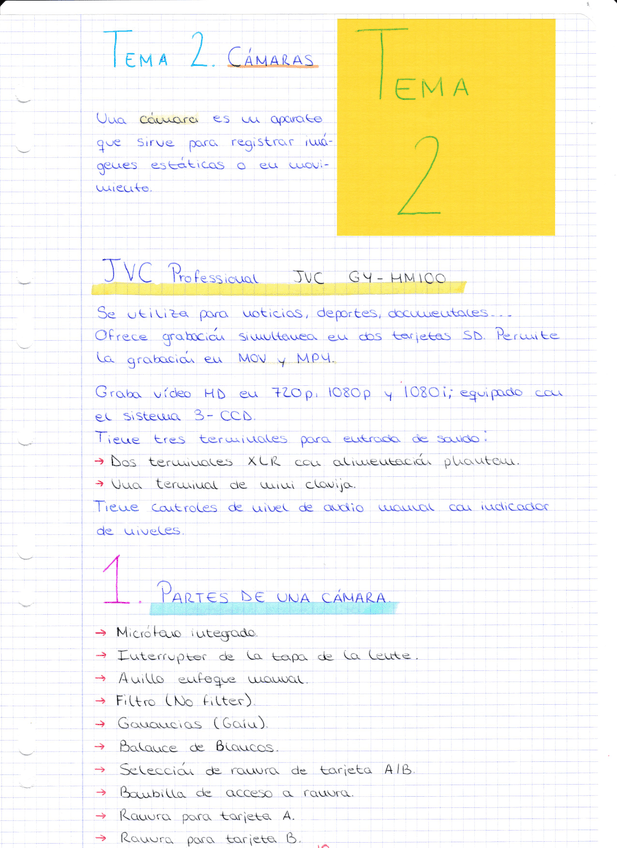 TEMA 2. CÁMARAS
TEMA
2
Una cámara es un aparato
que sirve para registrar imá-
genes estáticas o en movi-
miento.
JVC Professional JVC GY-HM100
Se utiliza para noticias, deportes, documentales...
Ofrece grabación simultanea en dos tarjetas SD. Permite
la grabación en MOV y MP4.
Graba vídeo HD en 720p, 1080p y 1080i; equipado con
el sistema 3-CCD.
Tiene tres terminales para entrada de sonido:
→ Dos terminales XLR con alimentación phantom.
→ Una terminal de mini clavija.
Tiene controles de nivel de audio manual con indicador
de niveles.
1. PARTES DE UNA CÁMARA.
→ Micrófono integrado.
→ Interruptor de la tapa de la lente.
→ Anillo enfoque manual.
→ Filtro (No filter).
→ Ganancias (Gain).
→ Balance de Blancos.
→ Selección de ranura de tarjeta A/B.
→ Bombilla de acceso a ranura.
→ Ranura para tarjeta A.
→ Ranura para tarjeta B.